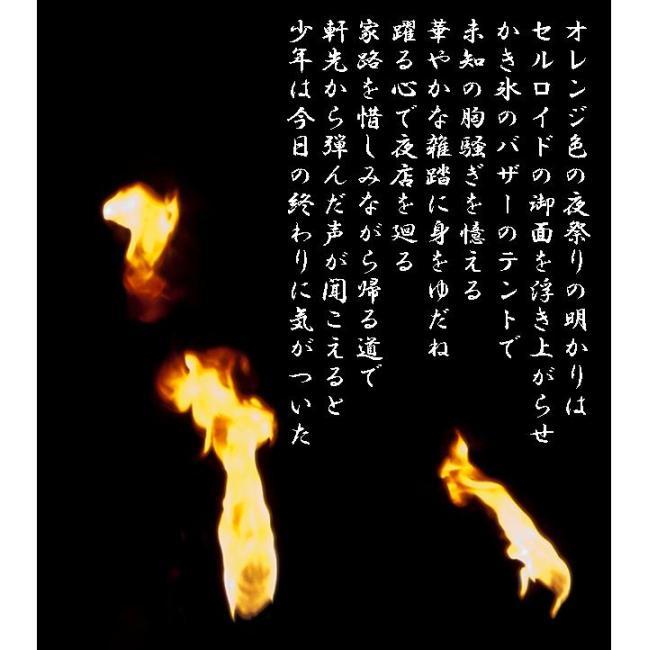 オレンジ色の夜祭りの明かりは
セルロイドの御面を浮き上がらせ
かき氷のバザーのテントで
未知の胸騒ぎを憶える
華やかな雑踏に身をゆだね
躍る心で夜店を廻る
家路を惜しみながら帰る道で
軒先から弾んだ声が聞こえると
少年は今日の終わりに気がついた